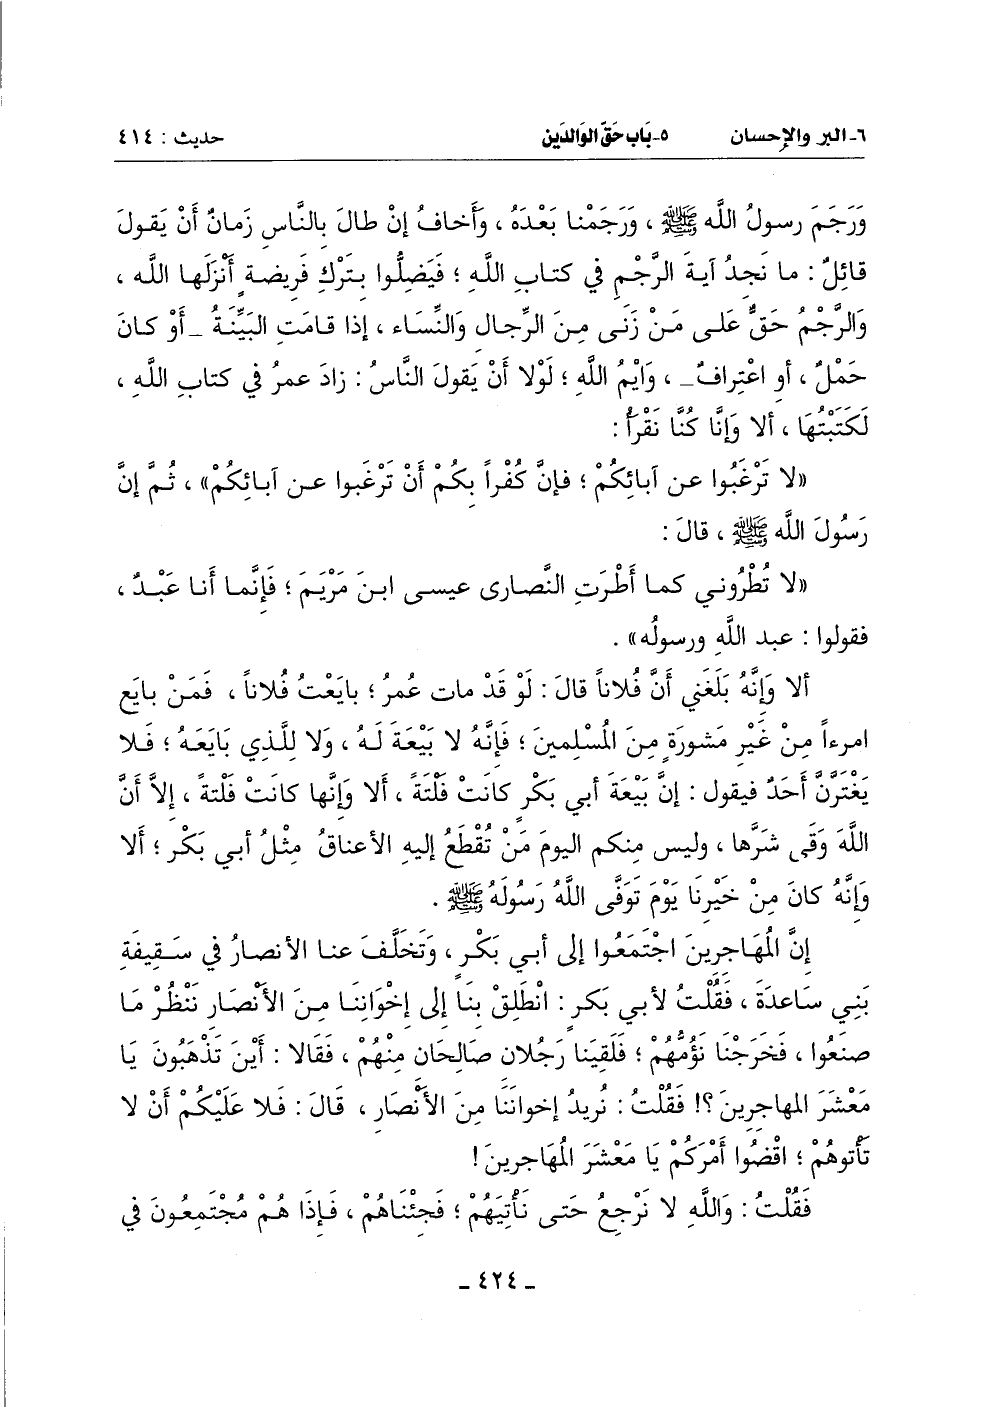 ٦- البر والإحسان ٥- بَاب حَقّ الوَالدَين حديث : ٤١٤
وَرَجَمَ رسولُ اللَّه ﷺ ، وَرَجَمْنا بَعْدَهُ ، وَأَخافُ إنْ طالَ بالنَّاسِ زَمانٌ أَنْ يَقولَ
قائِلٌ : ما نَجِدُ آيةَ الرَّجْمِ في كتابِ اللَّهِ ؛ فَيَضِلُّوا بِتَرْكِ فَريضةٍ أَنْزَلَها اللَّه ،
وَالرَّجْمُ حَقٌّ عَلَى مَنْ زَنَى مِنَ الرِّجال وَالنِّسَاء ، إذا قامَتِ البَيِّنَةُ _ أَوْ كانَ
حَمْلٌ ، أو اعْتِرافٌ _ ، وَايْمُ اللَّهِ ؛ لَوْلا أَنْ يَقولَ النَّاسُ : زادَ عمرُ في كتابِ اللَّهِ ،
لَكَتَبْتُهَا ، ألا وَإنَّا كُنَّا نَقْرَأُ :
«لا تَرْغَبُوا عن آبائِكُمْ ؛ فإنَّ كُفْراً بِكُمْ أَنْ تَرْغَبوا عن آبائِكُمْ» ، ثُمَّ إنَّ
رَسُولَ اللَّه ﷺ ، قالَ :
«لا تُطْرُوني كما أَطْرَتِ النَّصارى عيسى ابنَ مَرْيَمَ ؛ فَإنَّما أنا عَبْدٌ ،
فقولوا : عبد اللَّهِ ورسولُه» .
ألا وَإِنَّهُ بَلَغَني أَنَّ فُلاناً قالَ : لَوْ قَدْ مات عُمرُ ؛ بايَعْتُ فُلاناً ، فَمَنْ بايَع
امرءاً مِنْ غَيْرِ مَشورَةٍ مِنَ المُسْلمينَ ؛ فَإنَّهُ لا بَيْعَةَ لَهُ ، وَلا لِلَّذي بَايَعَهُ ؛ فَلا
يَغْتَرَّنَّ أَحَدٌ فيقول : إنَّ بَيْعَةَ أبي بَكْرٍ كانَتْ فَلْتَةً ، ألا وَإنَّها كانَتْ فَلْتةً ، إلاَّ أنَّ
اللَّهَ وَقَى شَرَّها ، وليس مِنكم اليومَ مَنْ تُقْطَعُ إليهِ الأعناقُ مِثْلُ أبي بَكْرٍ ؛ أَلا
وَإنَّهُ كانَ مِنْ خَيْرِنَا يَوْمَ تَوَفَّى اللَّهُ رَسُولَهُ ﷺ .
إنَّ المُهَاجرينَ اجْتَمَعُوا إلى أبي بَكْرٍ ، وَتَخَلَّفَ عنا الأنصارُ في سَقيفَةِ
بَنِي سَاعدَةَ ، فَقُلْتُ لأبي بَكرٍ : انْطَلِقْ بنَا إلى إخْوَانِنَا مِنَ الأَنْصَارِ نَنْظُرْ مَا
صنَعُوا ، فَخَرَجْنَا نَؤُمُّهُمْ ؛ فَلَقِيَنا رَجُلان صَالِحَان مِنْهُمْ ، فَقَالا : أيْنَ تَذْهَبُونَ يَا
مَعْشَرَ المهاجرينَ ؟! فَقُلْتُ : نُريدُ إخوانَنَا مِنَ الأَنْصَارِ ، قَالَ : فَلا عَلَيْكُمْ أَنْ لا
تَأْتوهُمْ ؛ اقْضُوا أَمْرَكُمْ يَا مَعْشَرَ المُهَاجرينَ !
فَقُلْتُ : وَاللَّهِ لا نَرْجِعُ حَتى نَأْتِيَهُمْ ؛ فَجِئْنَاهُمْ ، فَإذَا هُمْ مُجْتَمِعُونَ في
ـ ٤٢٤ ـ